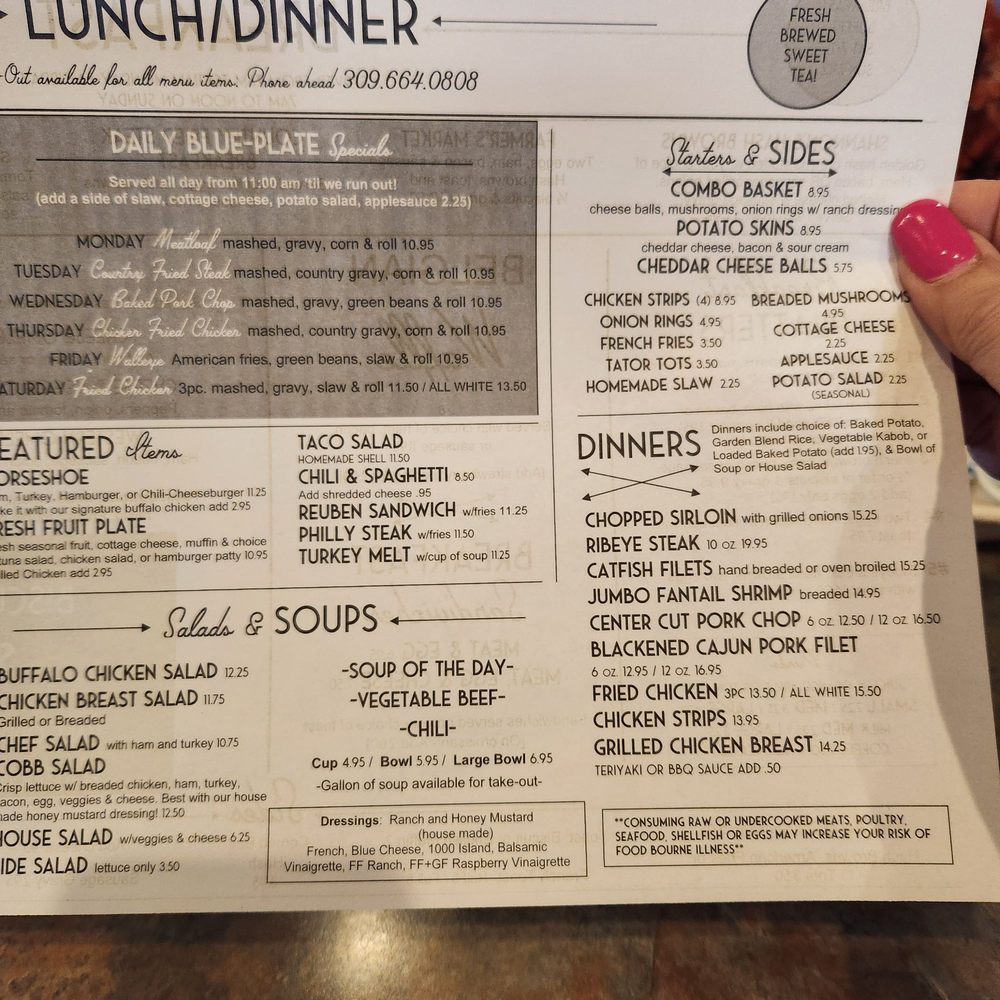 LUNCH/DINNER
-Out available for all menu items. Phone ahead 309.664.0808
FRESH
BREWED
SWEET
TEA!
DAILY BLUE-PLATE Specials
Served all day from 11:00 am 'til we run out!
(add a side of slaw, cottage cheese, potato salad, applesauce 2.25)
MONDAY Meatloaf mashed, gravy, corn & roll 10.95
TUESDAY Country Fried Steak mashed, country gravy, corn & roll 10.95
WEDNESDAY Baked Pork Chop mashed, gravy, green beans & roll 10.95
THURSDAY Chicken Fried Chicken mashed, country gravy, corn & roll 10.95
FRIDAY Walleye American fries, green beans, slaw & roll 10.95
ATURDAY Fried Chicken 3pc. mashed, gravy, slaw & roll 11.50 / ALL WHITE 13.50
EATURED Items
ORSESHOE
m, Turkey, Hamburger, or Chili-Cheeseburger 11.25
ke it with our signature buffalo chicken add 2.95
RESH FRUIT PLATE
esh seasonal fruit, cottage cheese, muffin & choice
tuna salad, chicken salad, or hamburger patty 10.95
lled Chicken add 2.95
TACO SALAD
HOMEMADE SHELL 11.50
CHILI & SPAGHETTI 8.50
Add shredded cheese .95
REUBEN SANDWICH w/fries 11.25
PHILLY STEAK w/fries 11.50
TURKEY MELT w/cup of soup 11.25
Salads & SOUPS
BUFFALO CHICKEN SALAD 12.25
CHICKEN BREAST SALAD 11.75
Grilled or Breaded
CHEF SALAD with ham and turkey 10.75
COBB SALAD
Crisp lettuce w/ breaded chicken, ham, turkey,
acon, egg, veggies & cheese. Best with our house
ade honey mustard dressing! 12.50
HOUSE SALAD w/veggies & cheese 6.25
IDE SALAD lettuce only 3.50
-SOUP OF THE DAY-
-VEGETABLE BEEF-
-CHILI-
Cup 4.95 / Bowl 5.95 / Large Bowl 6.95
-Gallon of soup available for take-out-
Dressings: Ranch and Honey Mustard
(house made)
French, Blue Cheese, 1000 Island, Balsamic
Vinaigrette, FF Ranch, FF+GF Raspberry Vinaigrette
Starters & SIDES
COMBO BASKET 8.95
cheese balls, mushrooms, onion rings w/ ranch dressing
POTATO SKINS 8.95
cheddar cheese, bacon & sour cream
CHEDDAR CHEESE BALLS 5.75
CHICKEN STRIPS (4) 8.95
ONION RINGS 4.95
FRENCH FRIES 3.50
TATOR TOTS 3.50
HOMEMADE SLAW 2.25
BREADED MUSHROOMS
4.95
COTTAGE CHEESE
2.25
APPLESAUCE 2.25
POTATO SALAD 2.25
(SEASONAL)
DINNERS
Dinners include choice of: Baked Potato,
Garden Blend Rice, Vegetable Kabob, or
Loaded Baked Potato (add 1.95), & Bowl of
Soup or House Salad
CHOPPED SIRLOIN with grilled onions 15.25
RIBEYE STEAK 10 oz. 19.95
CATFISH FILETS hand breaded or oven broiled 15.25
JUMBO FANTAIL SHRIMP breaded 14.95
CENTER CUT PORK CHOP 6 oz. 12.50 / 12 oz. 16.50
BLACKENED CAJUN PORK FILET
6 oz. 12.95 / 12 oz. 16.95
FRIED CHICKEN 3PC 13.50 / ALL WHITE 15.50
CHICKEN STRIPS 13.95
GRILLED CHICKEN BREAST 14.25
TERIYAKI OR BBQ SAUCE ADD .50
**CONSUMING RAW OR UNDERCOOKED MEATS, POULTRY,
SEAFOOD, SHELLFISH OR EGGS MAY INCREASE YOUR RISK OF
FOOD BOURNE ILLNESS**